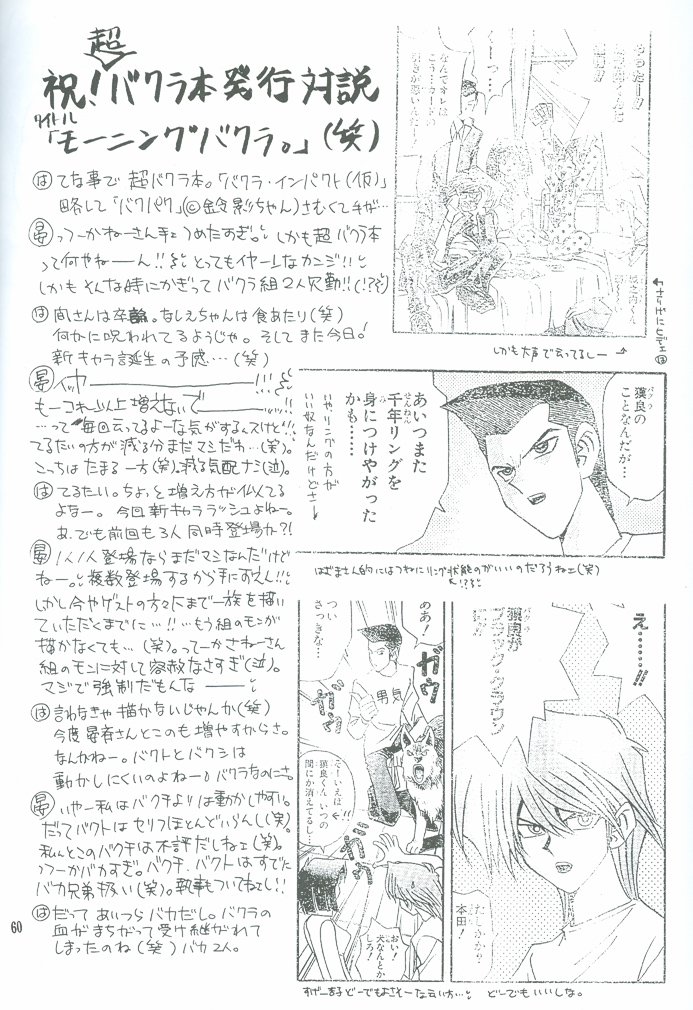 超
祝！バクラ本発行対説
タイトル
「モーニングバクラ。」(笑)
は てな事で 超バクラ本。「バクラ・インパクト(仮)」
略して「バクパク」
晏 っつーかねーさん
しかも超バクラ本
って何やねーん!!とってもイヤーんなカンジ!!
しかもそんな時にかぎってバクラ組2人欠勤!!(!??)
は 尚さんは卒論。なしえちゃんは食あたり(笑)
何かに呪われてるようじゃ。そしてまた今日!
新キャラ誕生の予感…(笑)
晏 イッカーーーー!!!
もーコレ以上増えないでーーー!!
…って毎回云ってるよーな気がするんですけど!!
てるたいの方が減る分まだマシだわ…(笑)。
こっちはたまる一方(笑)。減る気配ナシ(泣)。
は てるたい。ちょっと増え方が似てる
よなー。今回新キャララッシュよねー。
あ、でも前回も3人同時登場か?!
晏 1人1人登場ならまだマシなんだけど
ねー。複数登場するから手におえん!!
しかし今やゲストの方々にまで一族を描い
ていただくまでに…!!…もう組のモンが
描かなくても…(笑)。ってーかさねーさん
組のモンに対して容赦なさすぎ(泣)。
マジで強制だもんなーー
は 言わなきゃ描かないじゃんか(笑)
今度晏斉さんとこのも増やすからさ。
なんかねー。バクトとバクシは
動かしにくいのよねー。バクラなのにさ。
晏 いやー私はバクチよりは動かしやすい。
だってバクトはセリフほとんどいらんし(笑)。
私んとこのバクチは不評だしねェ(笑)。
っつーかバカすぎ。バクチ、バクトはすでに
バカ兄弟扱い(笑)。執事もついてねェし!!
は だって あいつらバカだし。バクラの
血がまちがって受け継がれて
しまったのね(笑)バカ2人。
60
やったー!!
くーっ…
なんでオレは
こう…カードの
引きが悪いんだ!
城之内くん
さりげにヒデェ は
しかも大声で云ってるしー
獏良の
バクラ
ことなんだが…
あいつまた
千年リングを
せんねん
身につけやがった
かも……
やはりこっちの方が
いい奴なんだけどさー
はざまさん的にはつねにリング状態のがいいのだろうねェ(笑)
え……!!
獏良が
バクラ
ブラック・クラウン
に!?
たしかか?
本田!
ああ!
つい
さっきな…
ガウ
ガウ
男気
そーいえば
獏良くん いつの
間にか消えてるし…!!
おい!
犬なんとか
しろ!
すげーまるどーでもよさそーな云い方…
どーでもいいしな。